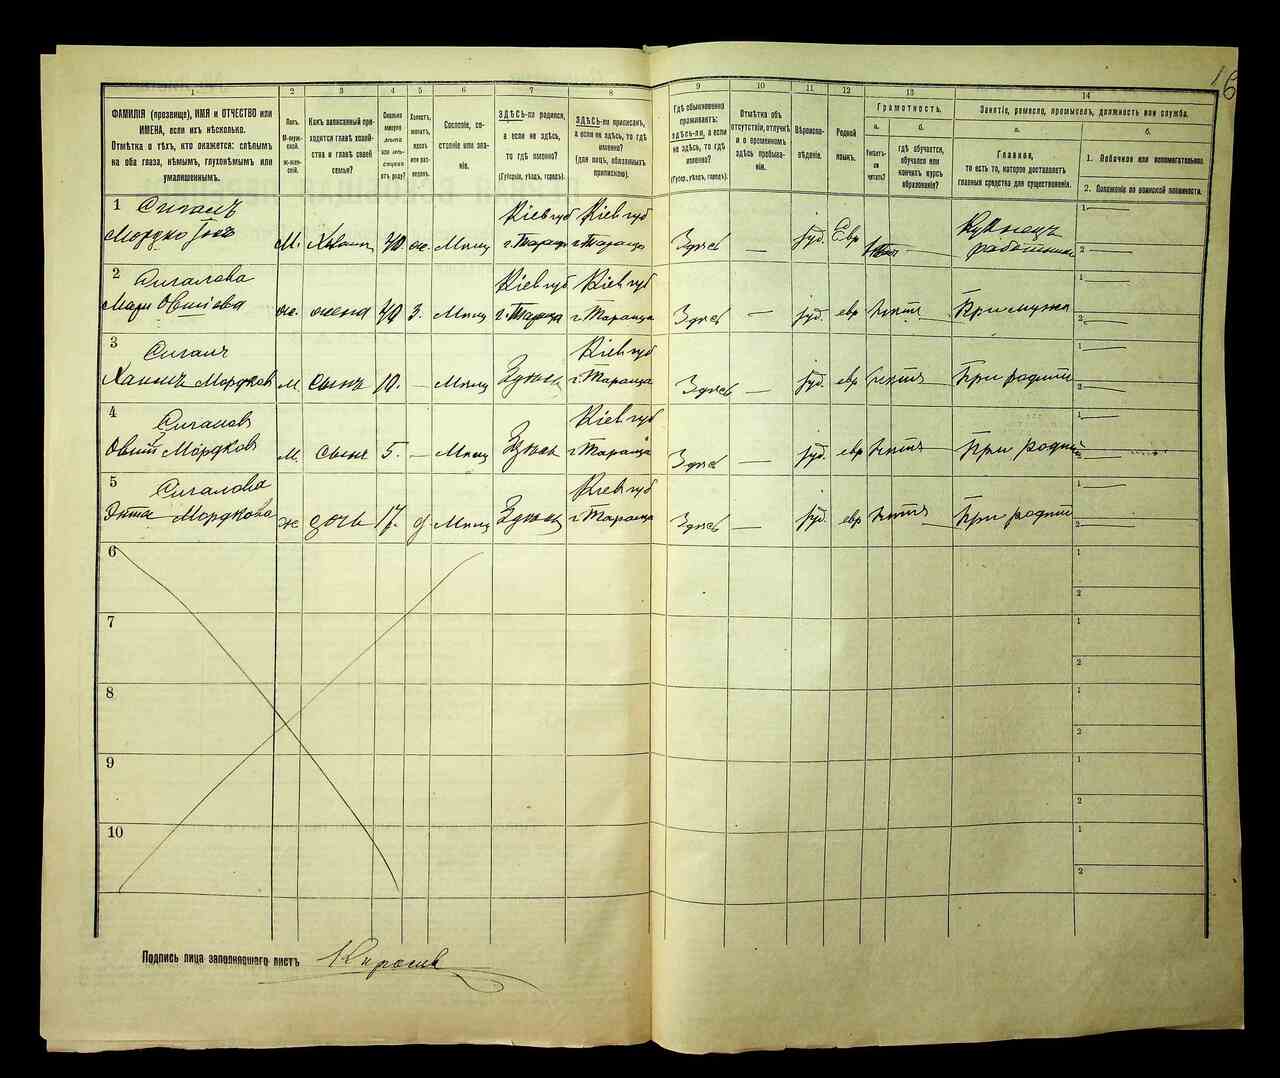 16
1 2 3 4 5 6 7 8 9 10 11 12 13 14
ФАМИЛІЯ (прозвище), ИМЯ и ОТЧЕСТВО или
ИМЕНА, если ихъ нѣсколько.
Отмѣтка о тѣхъ, кто окажется: слѣпымъ
на оба глаза, нѣмымъ, глухонѣмымъ или
умалишеннымъ.
Полъ.
М-мужс-
кой.
ж-жен-
скій.
Какъ записанный при-
ходится главѣ хозяй-
ства и главѣ своей
семьи?
Сколько
минуло
лѣтъ
или мѣ-
сяцевъ
отъ роду?
Холостъ,
женатъ,
вдовъ
или раз-
веденъ.
Сословіе, со-
стояніе или зва-
ніе.
ЗДѢСЬ-ли родился,
а если не здѣсь,
то гдѣ именно?
(Губернія, уѣздъ, городъ).
ЗДѢСЬ-ли приписанъ,
а если не здѣсь, то гдѣ
именно?
(для лицъ, обязанныхъ
припискою).
Гдѣ обыкновенно
проживаетъ:
здѣсь-ли, а если
не здѣсь, то гдѣ
именно?
(Губер., уѣздъ, городъ).
Отмѣтка объ
отсутствіи, отлучкѣ
и о временномъ
здѣсь пребыва-
ніи.
Вѣроиспо-
вѣданіе.
Родной
языкъ.
Грамотность.
а.
Умѣетъ-
ли
читать?
б.
гдѣ обучается,
обучался или
кончилъ курсъ
образованія?
Занятіе, ремесло, промыселъ, должность или служба.
а.
Главное,
то есть то, которое доставляетъ
главныя средства для существованія.
б.
1. Побочное или вспомогательное.
2. Положеніе по воинской повинности.
1 Сигалъ Кіев губ Кіев губ Кузнецъ 1
Мордко М. 40 ж. Мѣщ г. Таращ г. Тараща Здѣсь — Іуд. Евр работник 2
2 Сигалова Кіев губ Кіев губ 1
Овшіева ж. жена 40 З. Мѣщ г. Тараща г. Тараща Здѣсь — Іуд. евр нѣтъ При мужѣ 2
3 Сигалъ Кіев губ 1
Мордков М сынъ 10. — Мѣщ Здѣсь г. Тараща Здѣсь — Іуд. евр нѣтъ При родит 2
4 Сигалов Кіев губ 1
Овшій Мордков М. сынъ 5. — Мѣщ Здѣсь г. Тараща Здѣсь — Іуд. евр нѣтъ При родит 2
5 Сигалова Кіев губ 1
Мордкова ж дочь 17. д Мѣщ Здѣсь г. Тараща Здѣсь — Іуд. евр нѣтъ При родит 2
6 1
2
7 1
2
8 1
2
9 1
2
10 1
2
Подпись лица заполнявшаго листъ